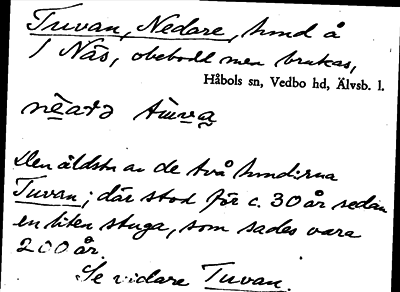 Tuvan, Nedare, hmd å
1 Näs, obebodd men brukas,
Håbols sn, Vedbo hd, Älvsb. l.
Den äldsta av de två hmdirna
Tuvan; där stod för c. 30 år sedan
en liten stuga, som sades vara
200 år.
Se vidare Tuvan.